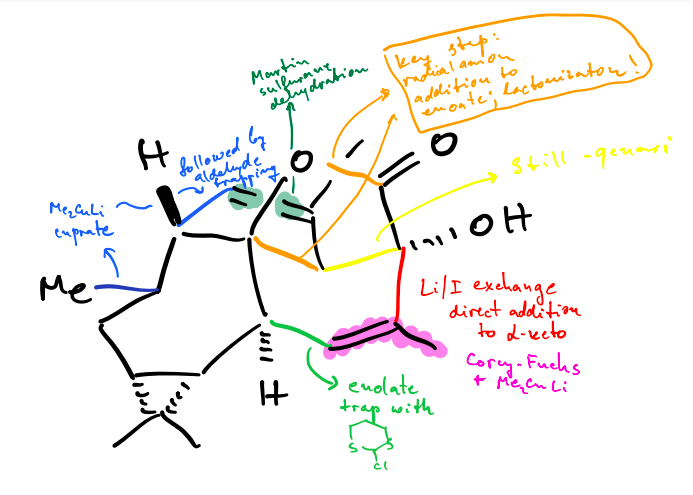 Key step:
radical anion
addition to
enoate; lactonization!
Martin
sulfurane
dehydration
followed by
aldehyde
trapping
H
O
O
Still-Genari
Me2CuLi
cuprate
OH
Me
Li/I exchange
direct addition
to α-keto
Corey-Fuchs
+ Me2CuLi
H
enolate
trap with
S
S
Cl